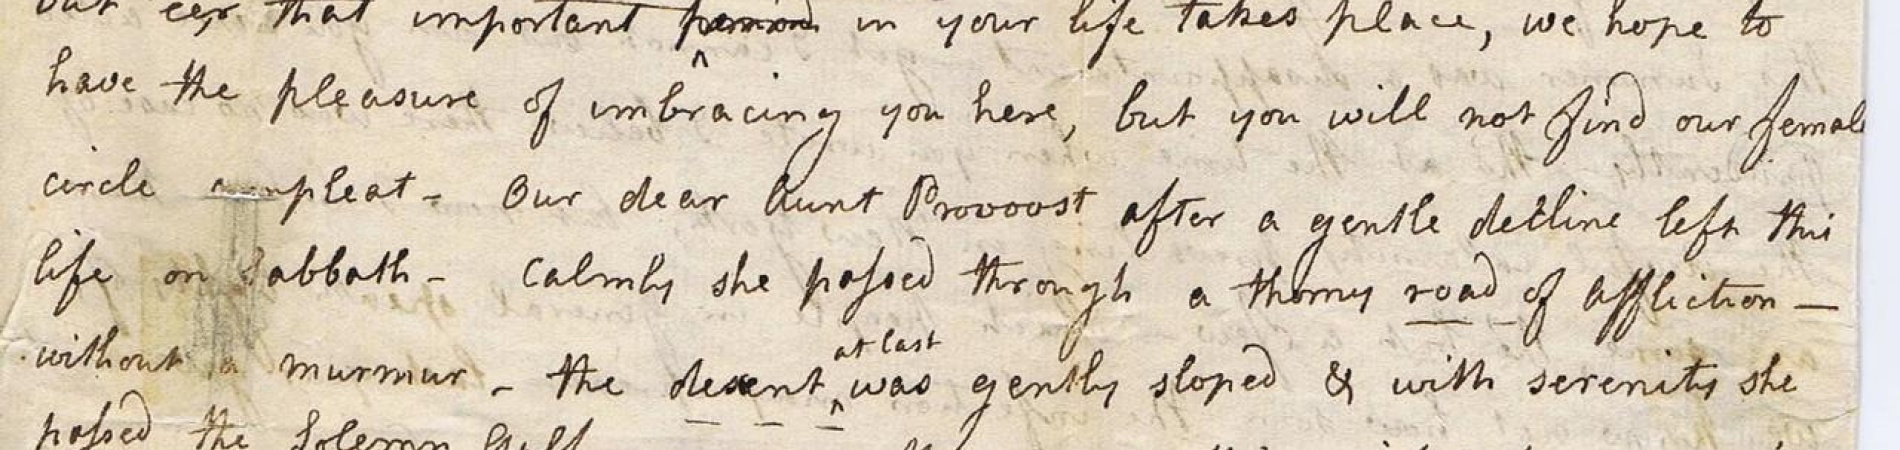 but eer that important period in your life takes place, we hope to
have the pleasure of imbracing you here, but you will not find our female
circle compleat - Our dear Aunt Provoost after a gentle decline left this
life on Sabbath - Calmly she passed through a thorny road of affliction —
without a murmur - the descent at last was gently sloped & with serenity she
passed the Solemn Gulf